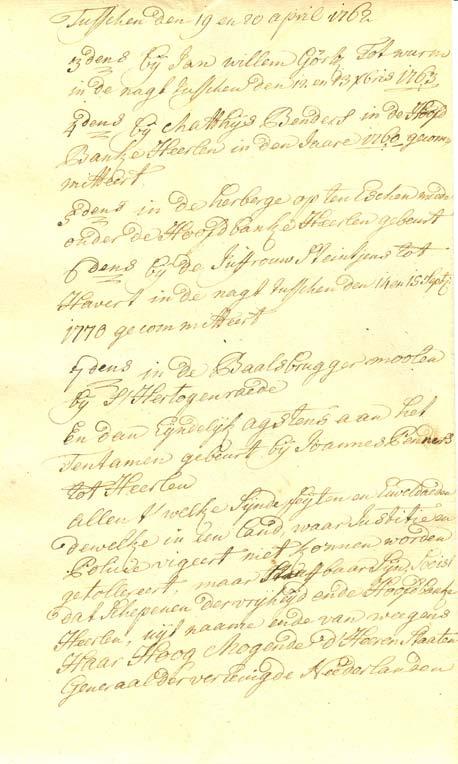 Tusschen den 19 en 20 april 1762
3dens bij Jan willem Görtz Tot wurm
in de nagt tusschen den 12 en 13 Xbris 1763
4dens bij Matthijs Benders in de Hoofd
Banke Heerlen in den Jaare 1760 gecom
mitteert
5dens in de herberge op ten Esschen mede
onder de Hoofdbanke Heerlen gebeurt
6dens bij de Juffrouw Steintjens tot
Havert in de nagt tusschen den 14 en 15
1770 gecommitteert
7dens in de Baalsbrugger moolen
bij S'Hertogenraede
En dan Eijndelijk agstens aan het
Tentamen gebeurt bij Joannes Penners
tot Heerlen
allen t' welke sijnde feijten en Euveldaeden
dewelke in een land, waar Justitie en
Policie vigeert niet konnen worden
getollereert, maar strafbaar sijn, soo ist
dat schepenen der vrijheijd ende Hoofdbanke
Heerlen, uijt naame ende van weegens
Haar Hoog Mogende d'Heren Staaten
Generaal der vereenigde Neederlanden